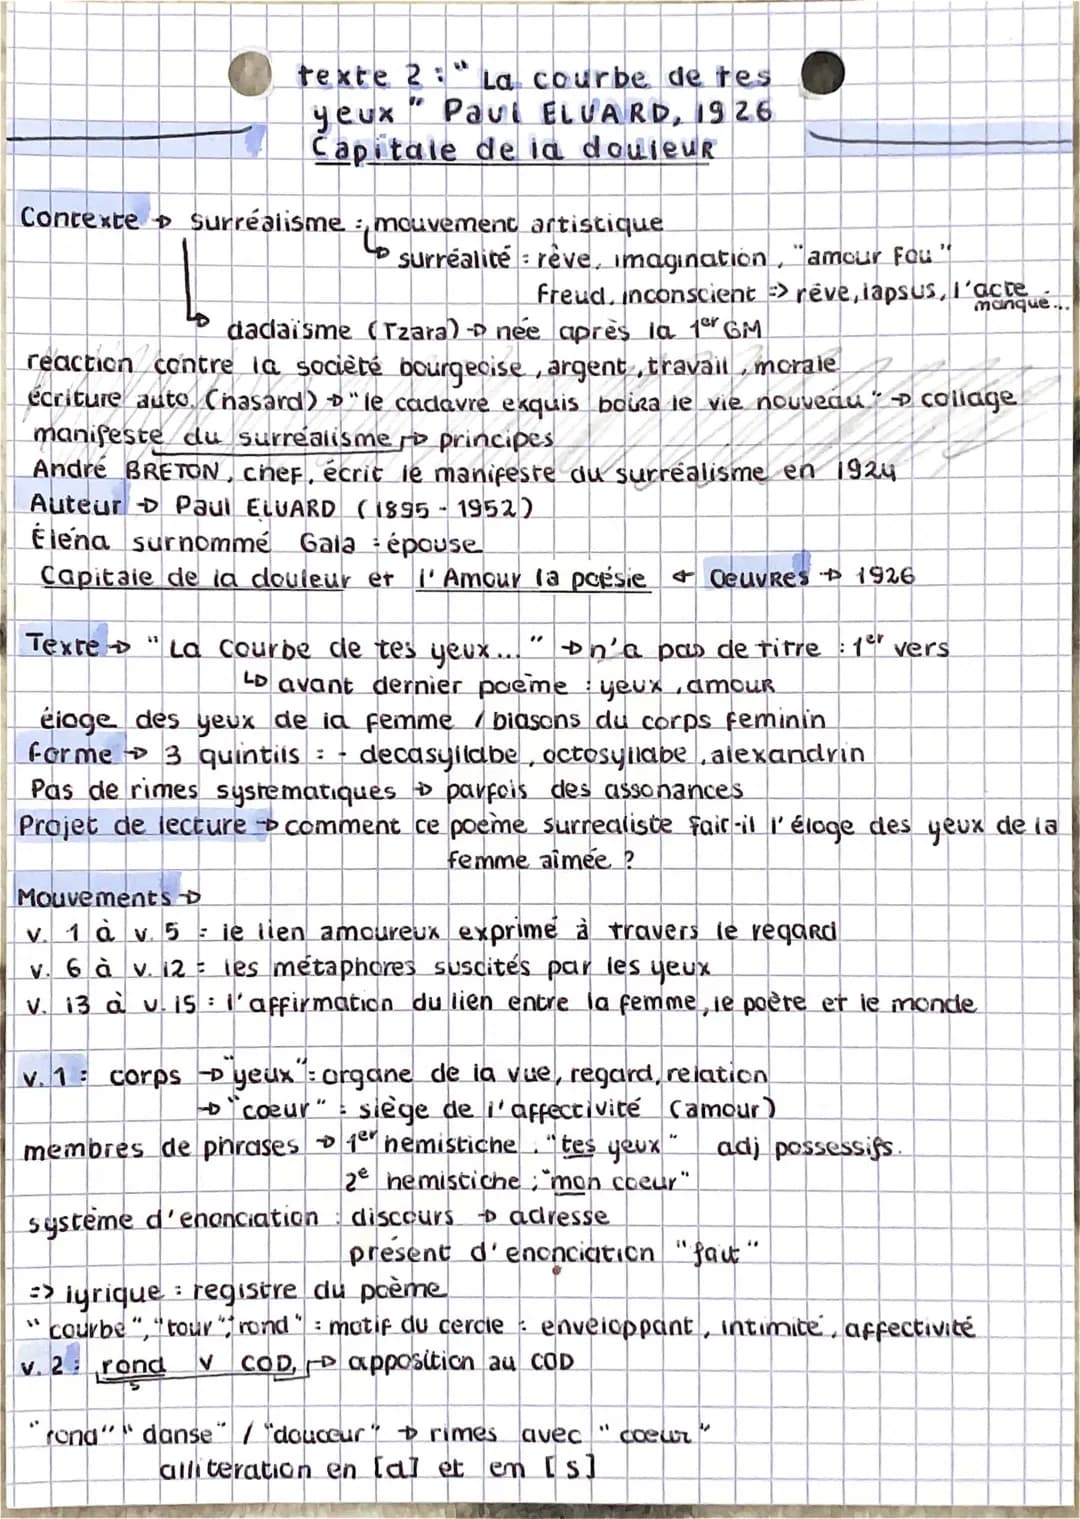 texte 2 : " La courbe de tes
yeux " Paul ELUARD, 1926
Capitale de la douleur
Contexte → surréalisme : mouvement artistique
↳ surréalité : rêve, imagination, "amour Fou"
Freud, inconscient => rêve, lapsus, l'acte manqué...
dadaïsme (Tzara) → née après la 1er GM
réaction contre la société bourgeoise, argent, travail, morale
écriture auto. (hasard) → "le cadavre exquis boira le vie nouveau" → collage
manifeste du surréalisme → principes
André BRETON, chef, écrit le manifeste du surréalisme en 1924
Auteur → Paul ELUARD (1895 - 1952)
Éléna surnommé Gala : épouse
Capitale de la douleur et l'Amour la poésie ← Oeuvres → 1926
Texte → "La Courbe de tes yeux..." → n'a pas de titre : 1er vers
↳ avant dernier poème : yeux, amour
éloge des yeux de la femme / blasons du corps feminin
forme → 3 quintils : - decasyllabe, octosyllabe, alexandrin
Pas de rimes systematiques → parfois des assonances
Projet de lecture → comment ce poème surrealiste fait-il l'éloge des yeux de la
femme aimée ?
Mouvements →
v. 1 à v. 5 : le lien amoureux exprimé à travers le regard
v. 6 à v. 12 : les métaphores suscités par les yeux
v. 13 à v. 15 : l'affirmation du lien entre la femme, le poète et le monde
v. 1 : corps → "yeux" : organe de la vue, regard, relation
→ "coeur" : siège de l'affectivité (amour)
membres de phrases → 1er hemistiche : "tes yeux" adj possessifs.
2e hemistiche : "mon coeur"
système d'enonciation : discours → adresse
présent d'enonciation "fait"
=> lyrique : registre du poème
"courbe", "tour", "rond" : motif du cercle : enveloppant, intimité, affectivité
v. 2 : rond V COD, → apposition au COD
S
"rond" "danse" / "douceur" → rimes avec "coeur"
alliteration en [d] et en [s]